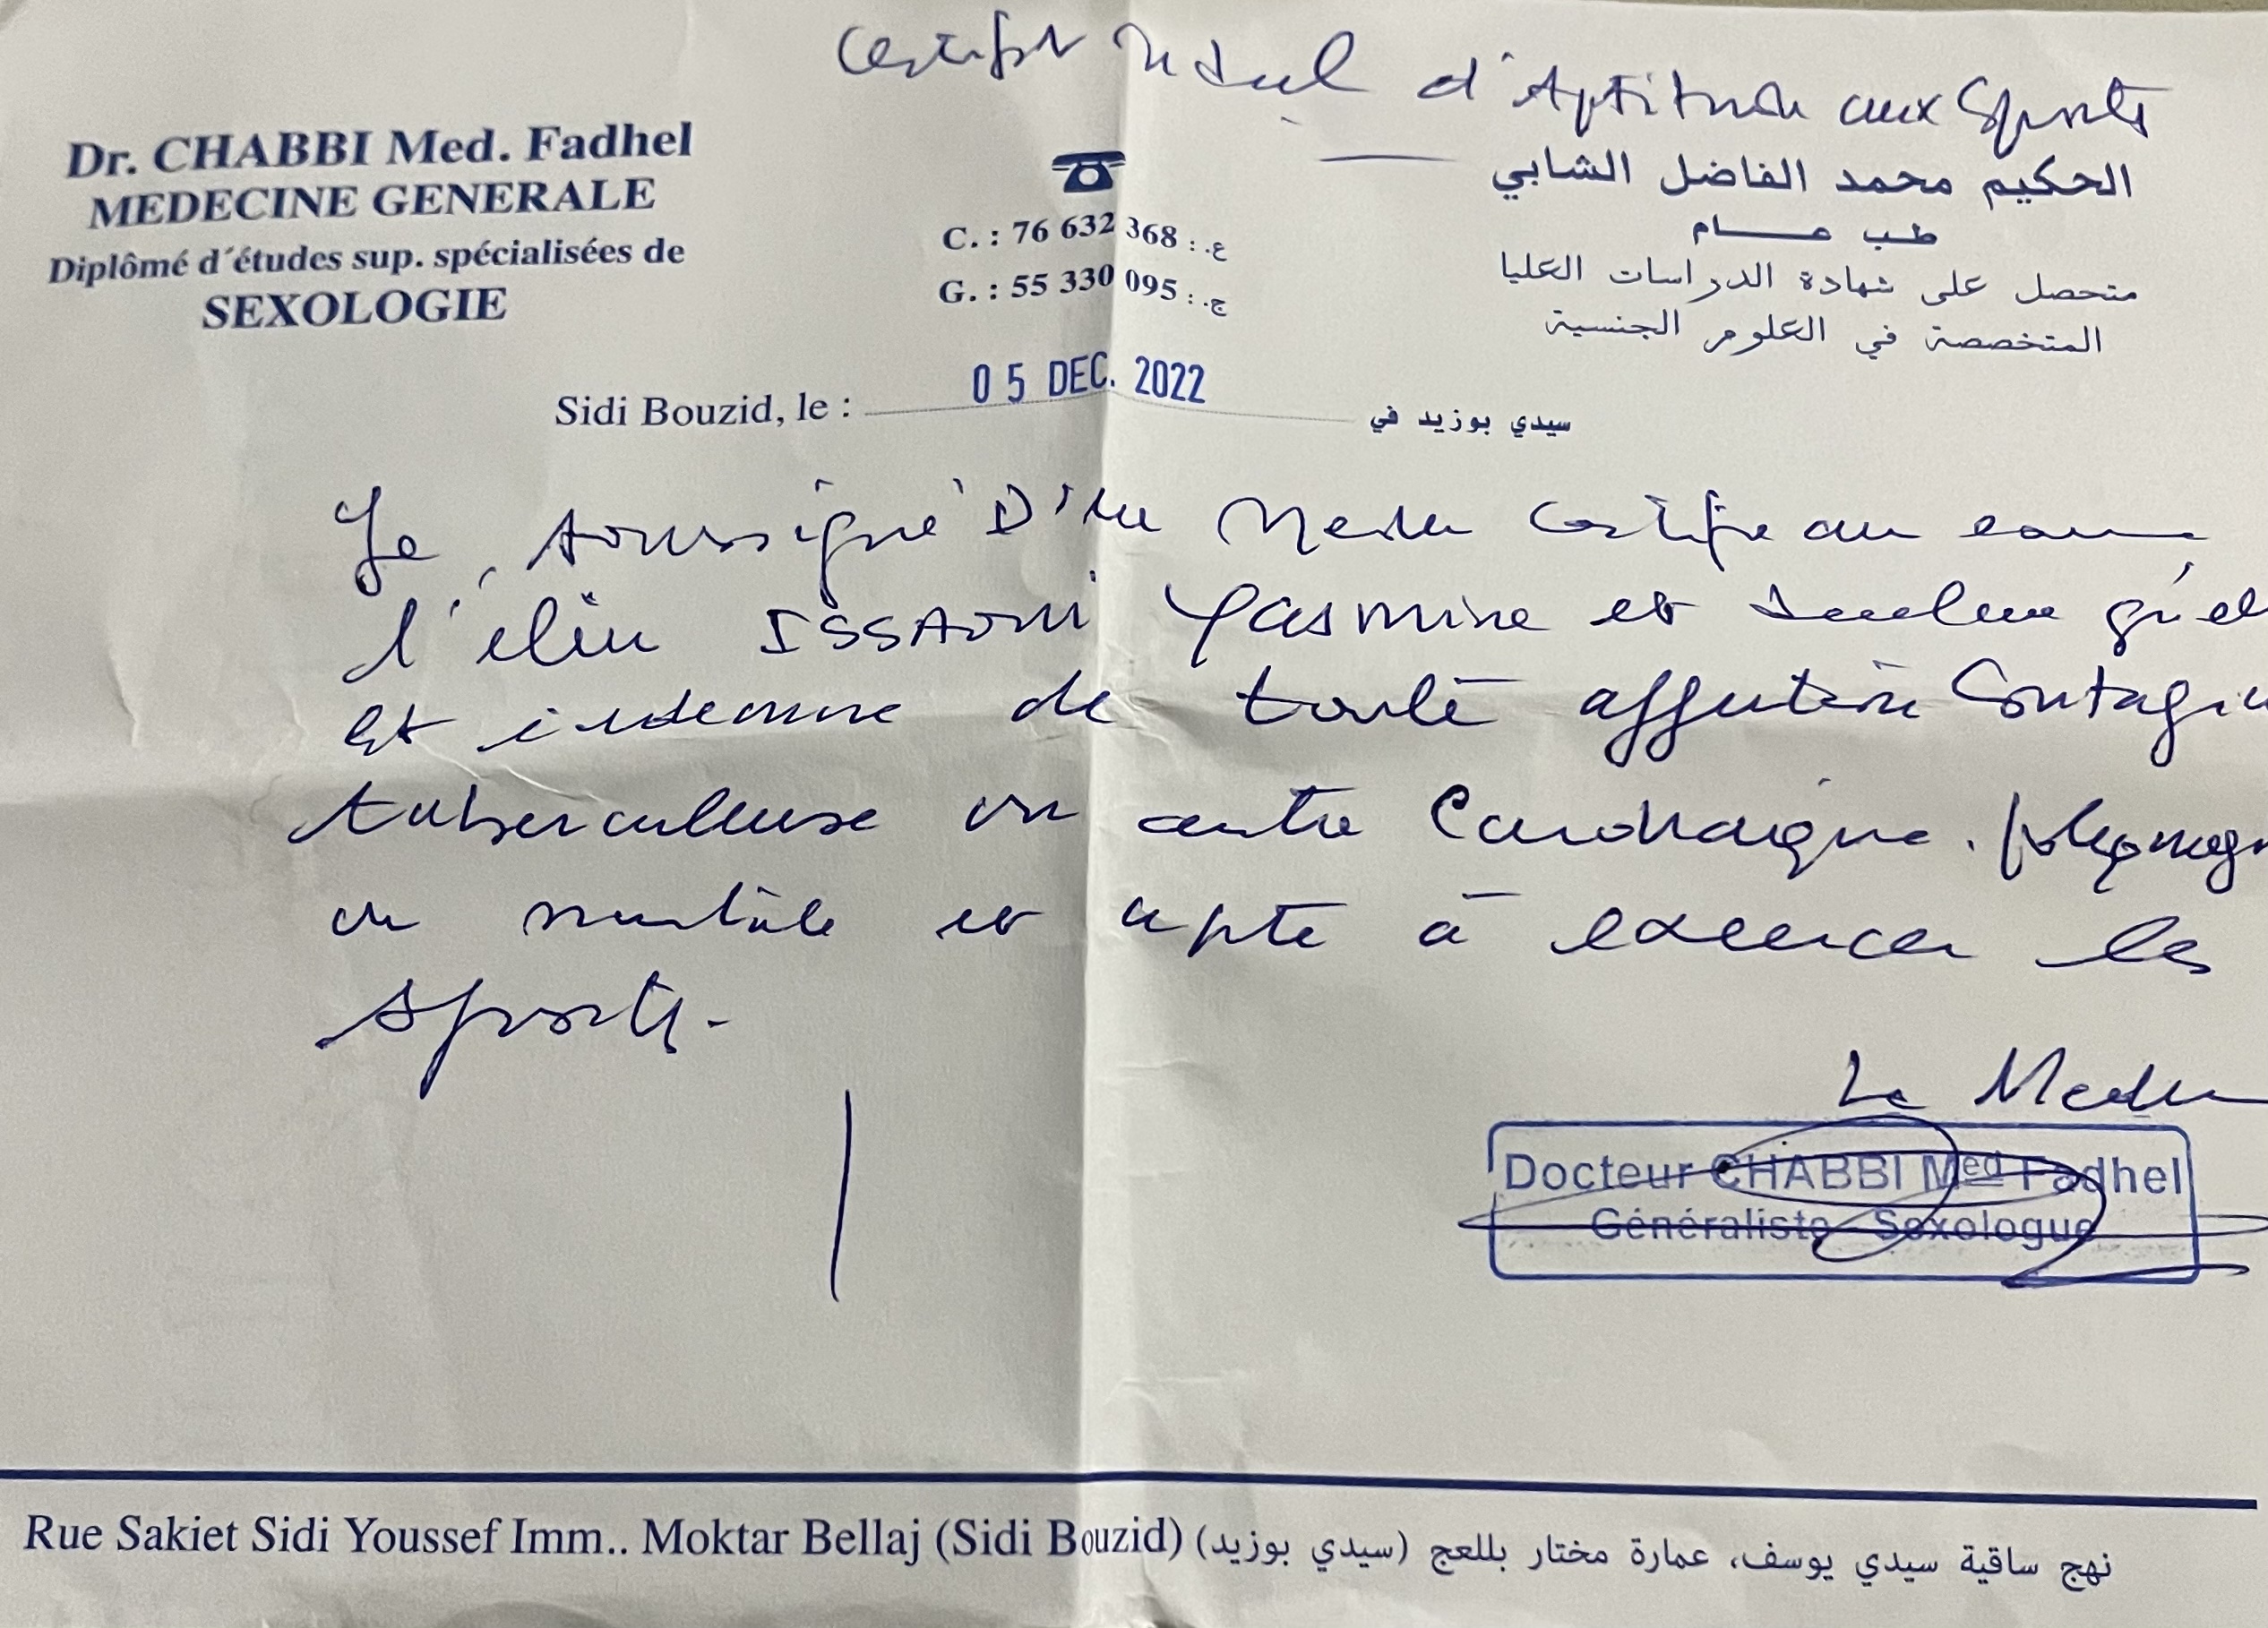 Certificat Médical d'Aptitude aux Sports
Dr. CHABBI Med. Fadhel
MEDECINE GENERALE
Diplômé d'études sup. spécialisées de
SEXOLOGIE
C. : 76 632 368 : ع.
G. : 55 330 095 : ج.
الحكيم محمد الفاضل الشابي
طب عام
متحصل على شهادة الدراسات العليا
المتخصصة في العلوم الجنسية
Sidi Bouzid, le : 05 DEC. 2022 سيدي بوزيد في
Je soussigné certifie
l'élève ISSAOUI Yasmine et
est indemne de toute affection
tuberculeuse ou autre
ou mentale et apte à exercer les
sports.
Le
Docteur CHABBI Med Fadhel
Généraliste - Sexologue
Rue Sakiet Sidi Youssef Imm.. Moktar Bellaj (Sidi Bouzid) نهج ساقية سيدي يوسف، عمارة مختار بللعج (سيدي بوزيد)